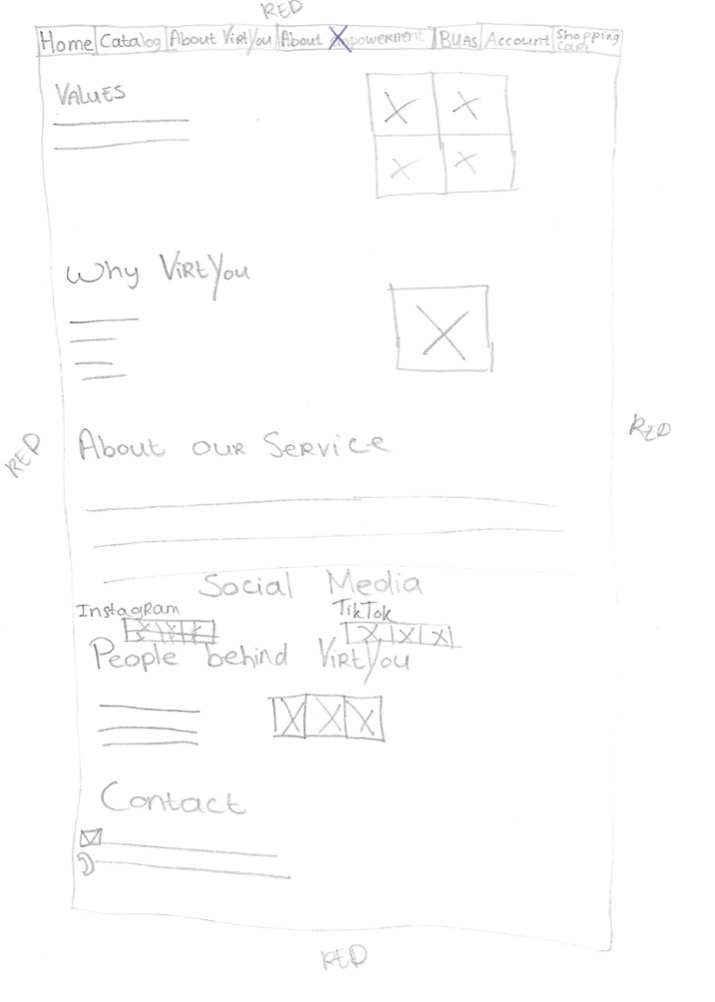 RED
Home Catalog About VirtYou About Xpowerment BUAS Account Shopping Cart
VALUES
Why VirtYou
RED
RED
About our Service
Social Media
Instagram
TikTok
People behind VirtYou
Contact
RED